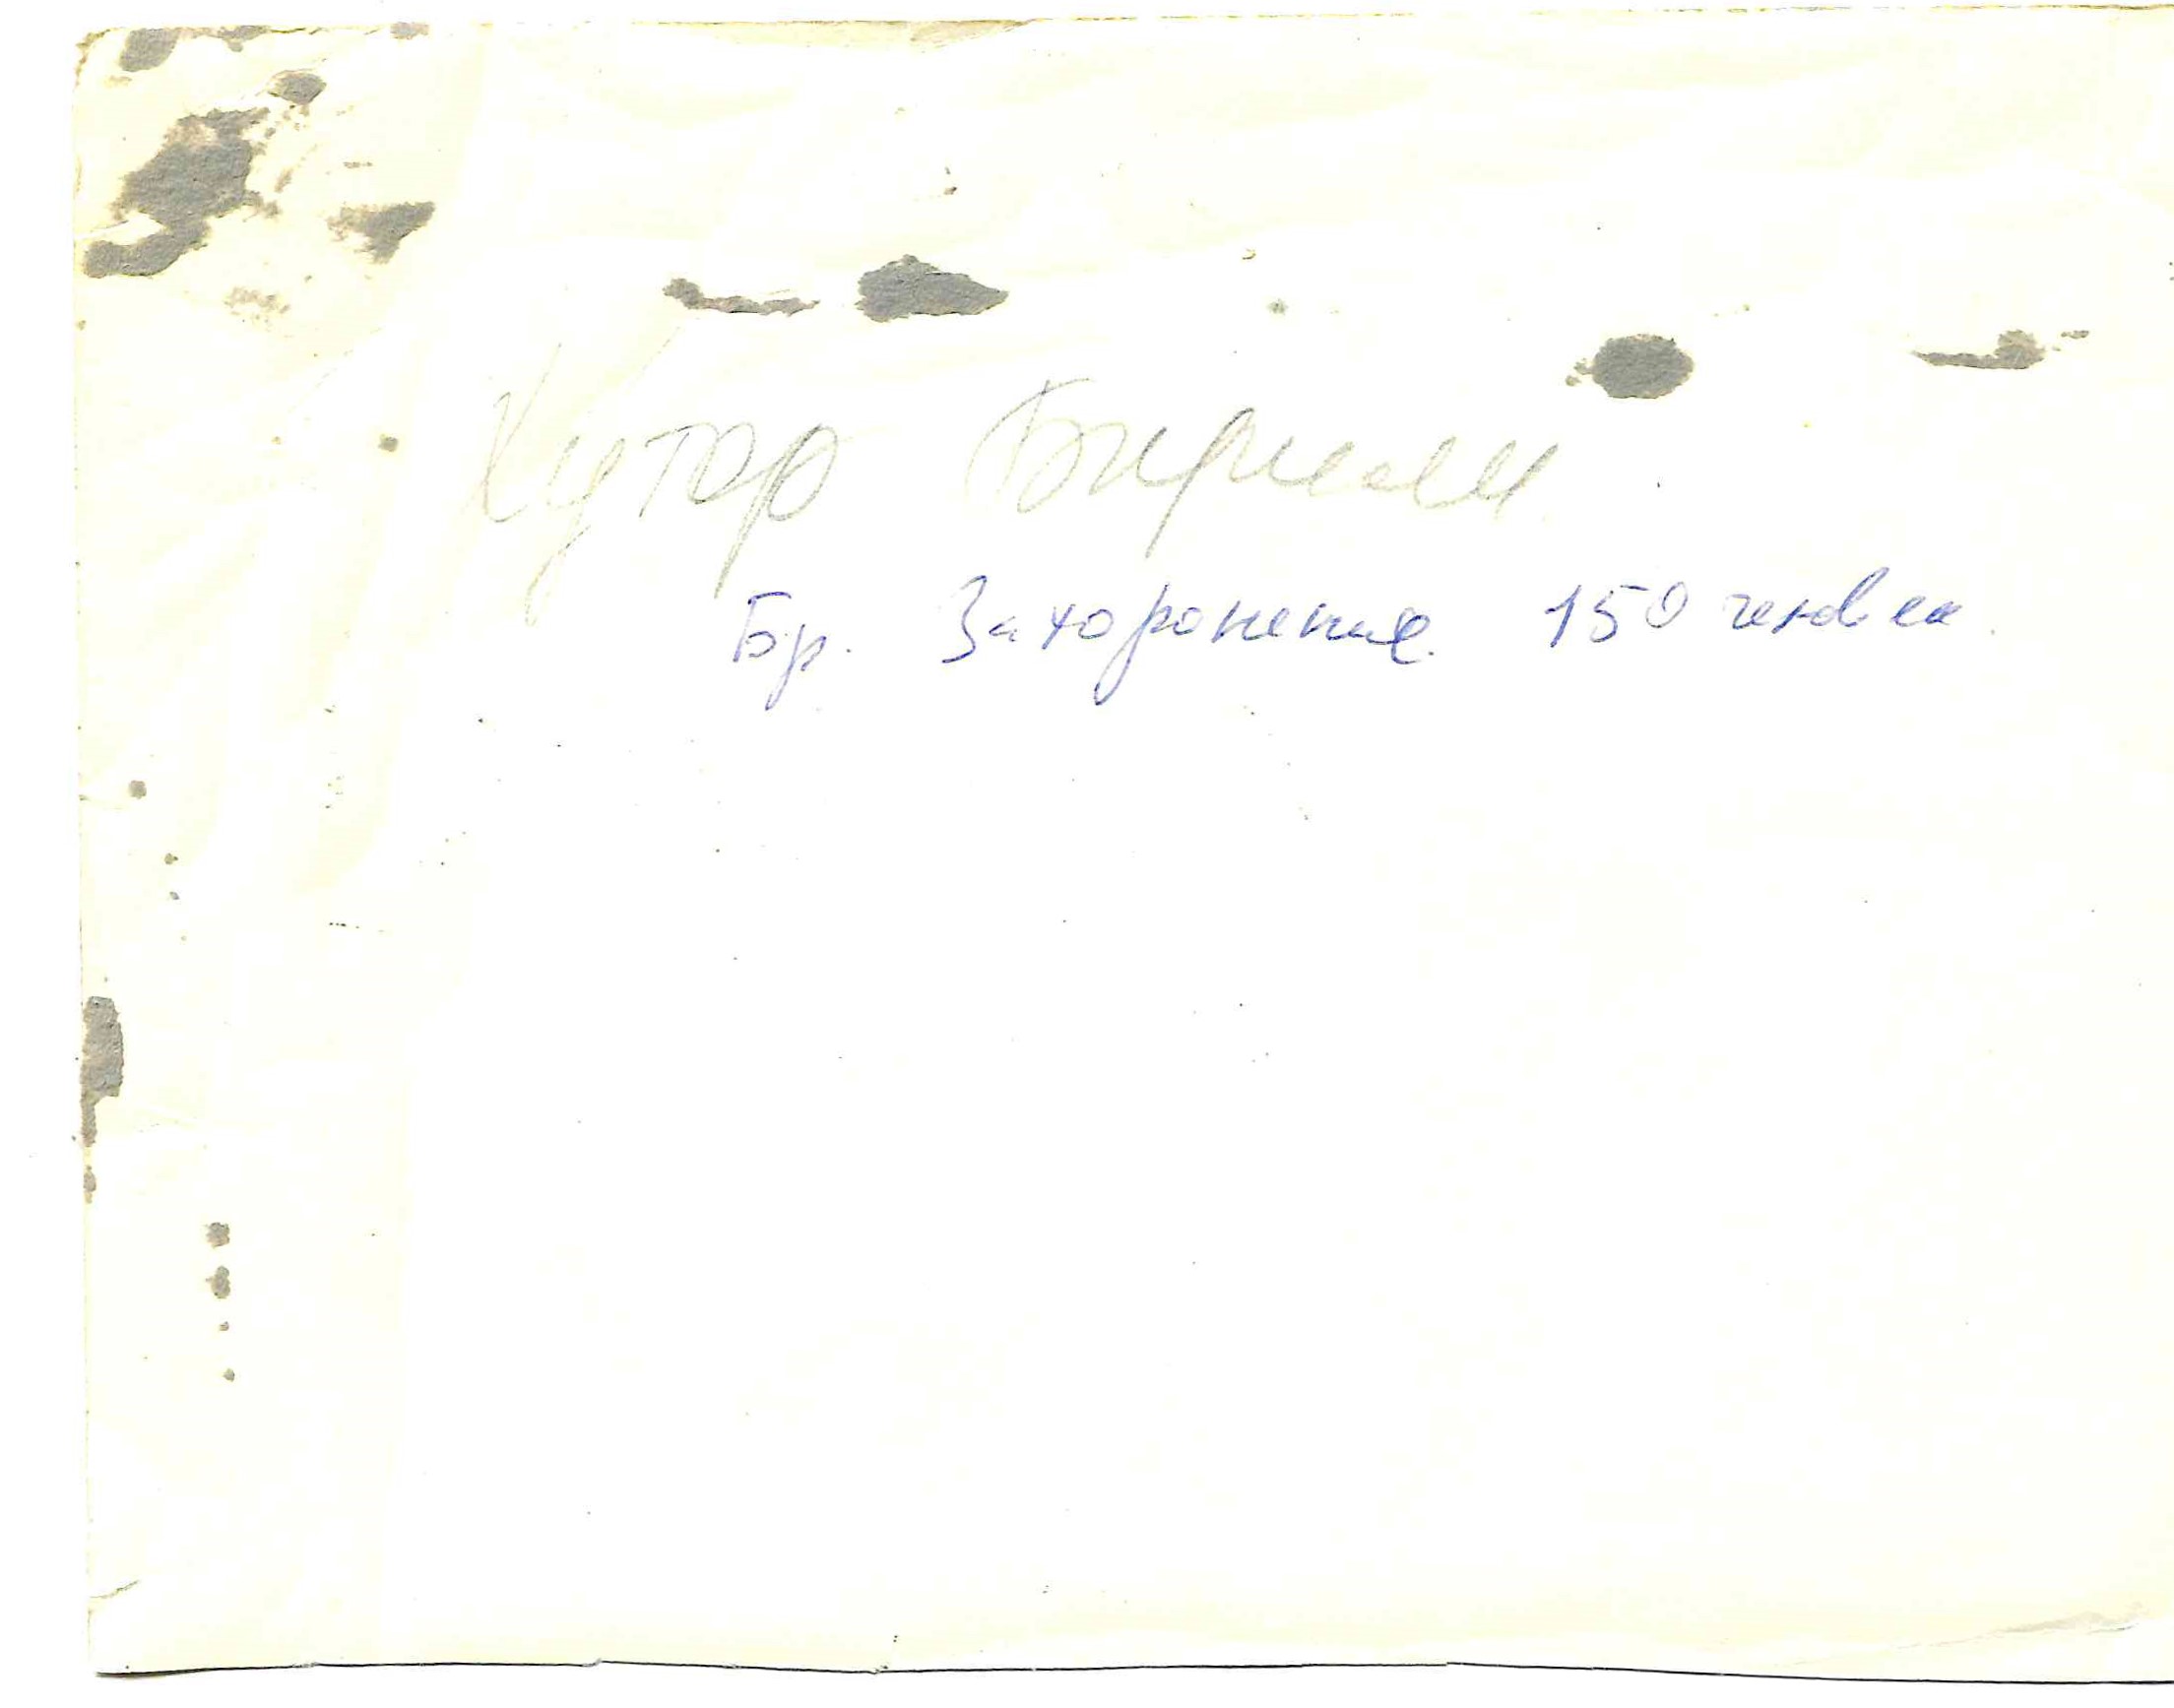 Хутор
Бр. Захоронение. 150 человек.